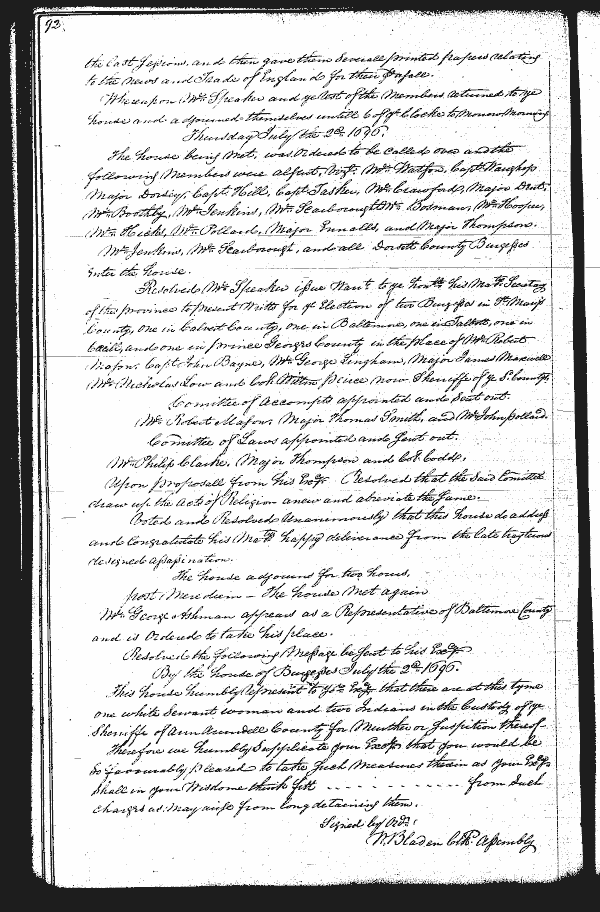 93.
the last Sessions, and then gave them Severall printed papers relating
to the news and Trade of England for their
Whereupon Mr. Speaker and ye rest of the Members returned to ye
house and adjourned themselves untill 6 of ye Clocke to Morrow Morning
Thursday July the 2d. 1696.
The house being Met, was Ordered to be Called over and the
following Members were absent, Vizt. Mr. Watson, Capt. Waughop
Major Dorsey, Capt. Hill, Capt. Tasker, Mr. Crawford, Major Dent,
Mr. Boothby, Mr. Jenkins, Mr. Scarborough Mr. Bosman, Mr. Hooper,
Mr. Hicks, Mr. Pollard, Major Ennalls, and Major Thompson.
Mr. Jenkins, Mr. Scarborough, and all Dorsett County Burgesses
Enter the house.
Resolved, Mr. Speaker issue Warrt. to ye honble his Maty. Secretary
of this province to present Writts for ye Election of two Burgesses in St. Marys
County, one in Calvert County, one in Baltimore, one in Talbot, one in
Cecill, and one in prince Georges County in the place of Mr. Robert
Mason, Capt. John Bayne, Mr. George Lingham, Major James Maxwell
Mr. Nicholas Low and Col. since now Sheriffs of ye Sd. Countys.
Comittee of Accompts appointed and Sent out.
Mr. Robert Mason, Major Thomas Smith, and Mr. John Pollard.
Comittee of Laws appointed and Sent out.
Mr. Philip Clarke, Major Thompson and Col. Codd.
Upon proposall from his Excy. Resolved that the Said Comittee
draw up the Acts of Religion anew and abreviate the Same.
Voted and Resolved Unanimously that this house do address
and Congratulate his Matys. happy deliverance from the late traytrous
designed assassination.
The house adjourns for two hours.
post Meredium – The house Met again
Mr. George Ashman appears as a Representative of Baltimore County
and is Ordered to take his place.
Resolved the following Message be Sent to his Excy.
By the house of Burgesses July the 2d. 1696.
This house humbly represent to yor. Excy. that there are at this tyme
one white Servant woman and two Indians in the Custody of ye
Sheriffe of Ann Arundell County for Murther or Suspition thereof
Therefore we humbly Supplicate your Excy. that you would be
So favourably pleased to take Such Measures therein as your Excy.
Shall in your Wisdome think fitt - - - - - - - - - - from Such
Charges as may arise from long detaining them.
Signed by Ordr.
W. Bladen Clk. Assembly